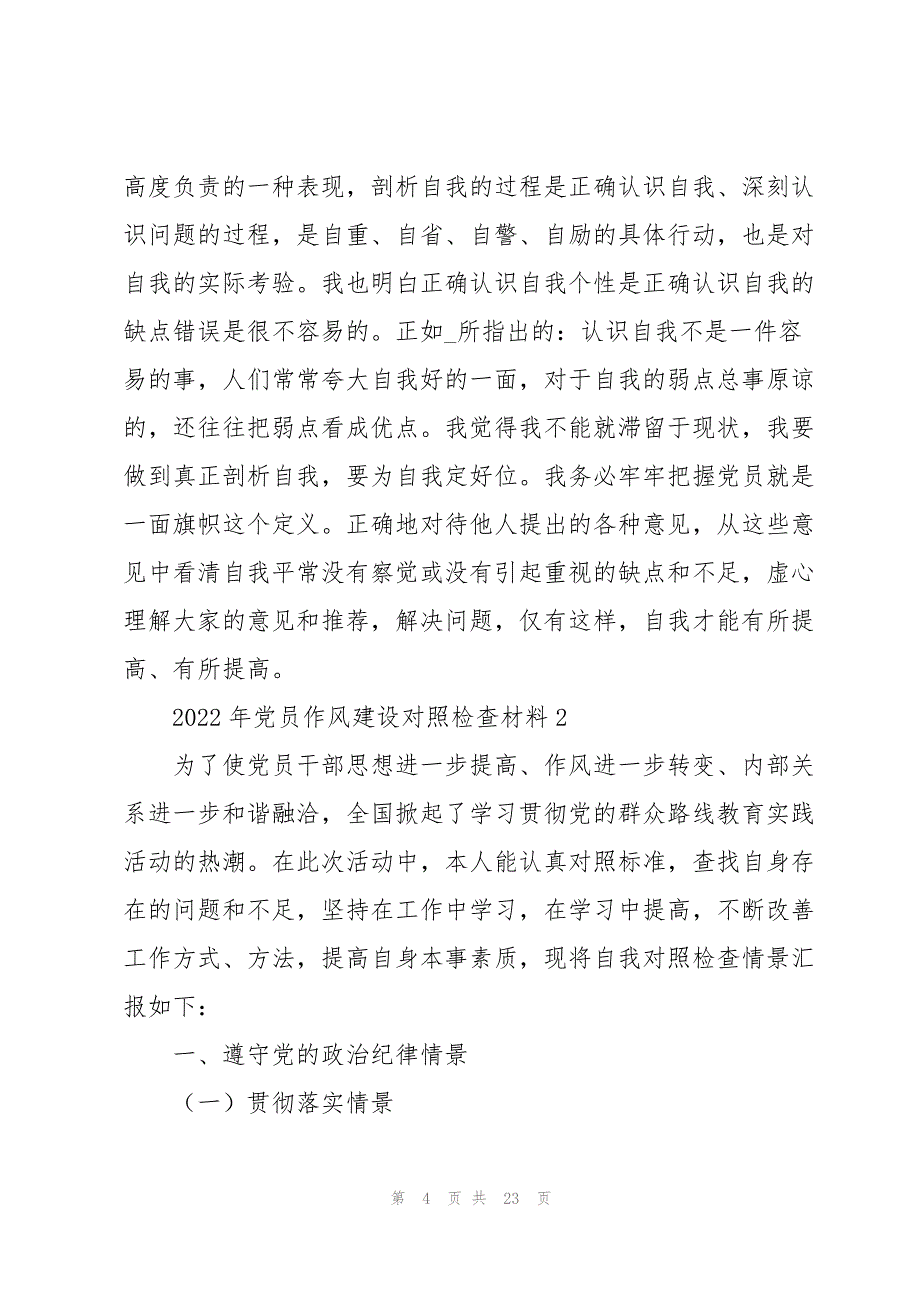 高度负责的一种表现，剖析自我的过程是正确认识自我、深刻认
识问题的过程，是自重、自省、自警、自励的具体行动，也是对
自我的实际考验。我也明白正确认识自我个性是正确认识自我的
缺点错误是很不容易的。正如_所指出的：认识自我不是一件容
易的事，人们常常夸大自我好的一面，对于自我的弱点总事原谅
的，还往往把弱点看成优点。我觉得我不能就滞留于现状，我要
做到真正剖析自我，要为自我定好位。我务必牢牢把握党员就是
一面旗帜这个定义。正确地对待他人提出的各种意见，从这些意
见中看清自我平常没有察觉或没有引起重视的缺点和不足，虚心
理解大家的意见和推荐，解决问题，仅有这样，自我才能有所提
高、有所提高。
2022 年党员作风建设对照检查材料 2
为了使党员干部思想进一步提高、作风进一步转变、内部关
系进一步和谐融洽，全国掀起了学习贯彻党的群众路线教育实践
活动的热潮。在此次活动中，本人能认真对照标准，查找自身存
在的问题和不足，坚持在工作中学习，在学习中提高，不断改善
工作方式、方法，提高自身本事素质，现将自我对照检查情景汇
报如下：
一、遵守党的政治纪律情景
（一）贯彻落实情景
第 4 页 共 23 页